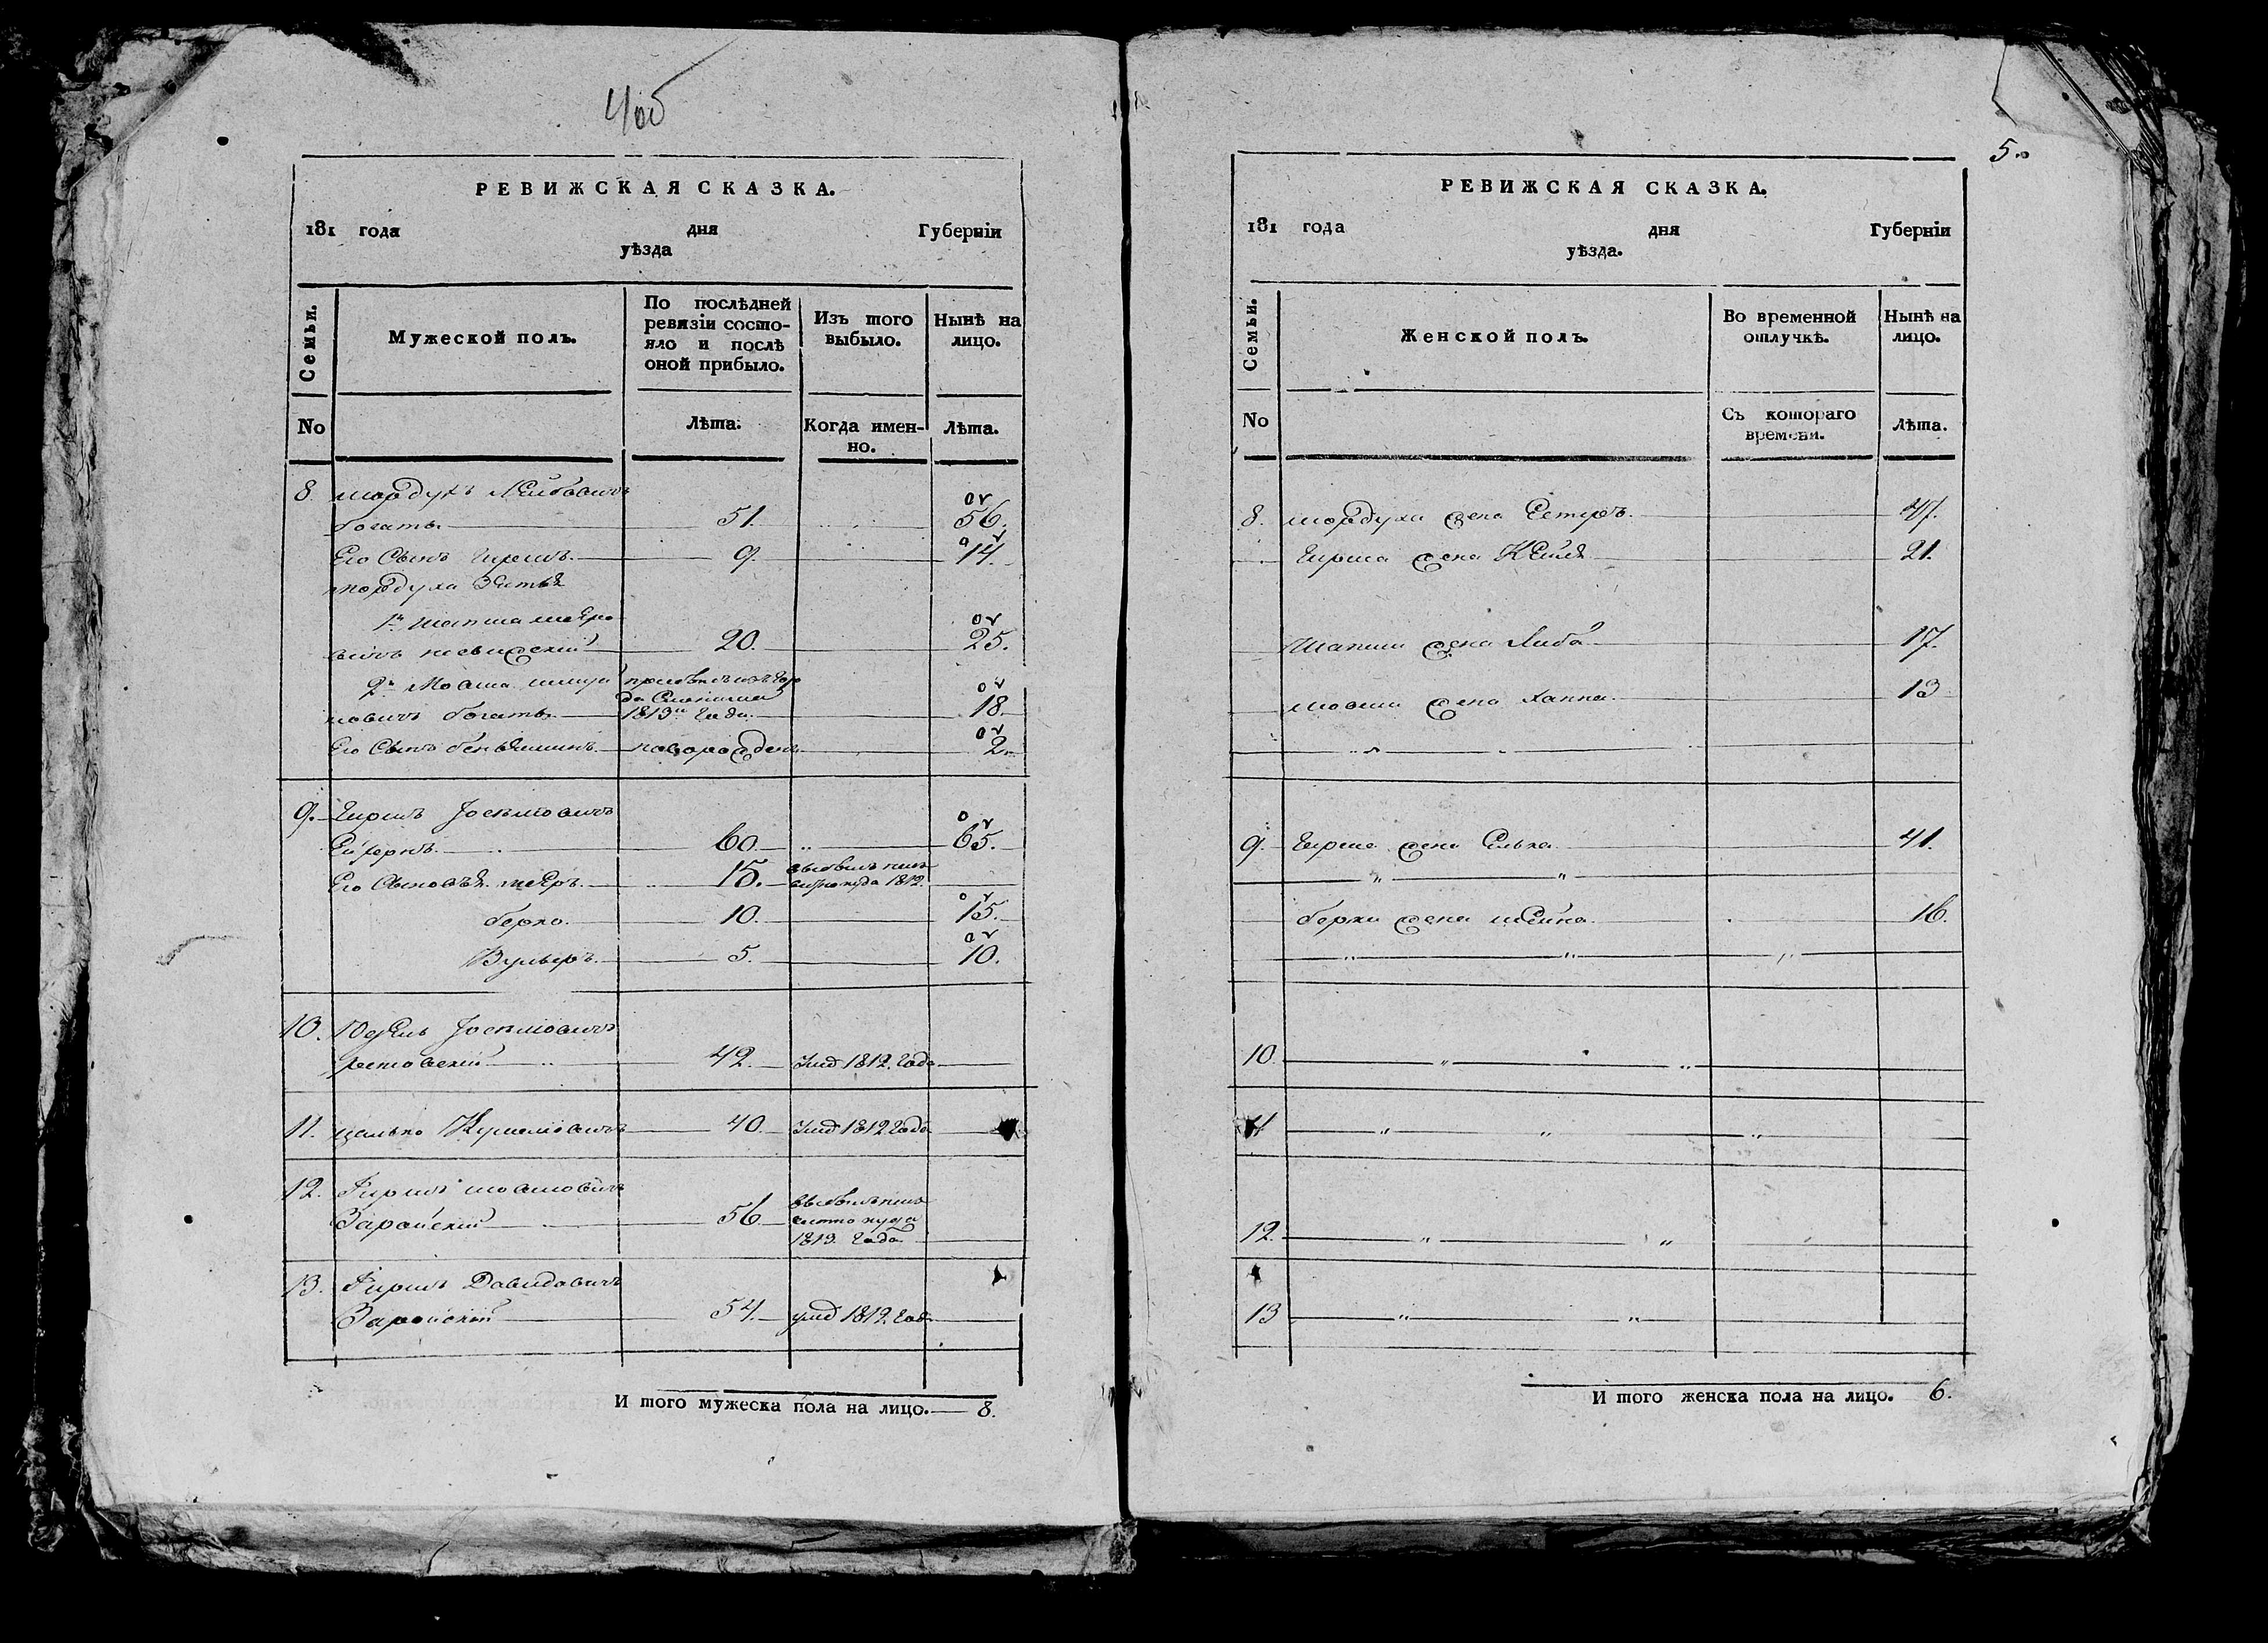 4об
РЕВИЖСКАЯ СКАЗКА.
181 года дня Губерніи
уѣзда
Семьи.
Мужеской полъ.
По послѣдней
ревизіи состо-
яло и послѣ
оной прибыло.
Изъ того
выбыло.
Нынѣ на
лицо.
No
Лѣта.
Когда имен-
но.
Лѣта.
8. Мордухъ Лейбовичъ
богатъ 51. 56.
Его Сынъ Гиршъ 9. 14.
Мордуха Зятья
1й Шапша Мееро
вичъ несвижскій 20. 25.
2й Мовша
новичъ богатъ 1813го Года 18.
Его Сынъ беньяминъ новорожденъ 2.
9. Гиршъ Іосіовичъ
60. 65.
Его Сыновья. Мееръ 15. 1812.
берко 10. 15.
Вульфъ 5. 10.
10. Юдель Іосіовичъ
42. Умд 1812. Года
11. 40. Умд 1812 Года
12. Гиршъ Мовшовичъ
Заройскій 56
1813. Года
13. Гиршъ Давидовичъ
Заройскій 54. умд 1812. Года
И того мужеска пола на лицо. 8.
5.
РЕВИЖСКАЯ СКАЗКА.
181 года дня Губерніи
уѣзда.
Семьи.
Женской полъ.
Во временной
отлучкѣ.
Нынѣ на
лицо.
No
Съ котораго
времени.
Лѣта.
8. Мордуха жена Естеръ 47.
Гирша жена Кейля 21.
Шапши жена Либа 17.
Мовши жена Ханна 13
9. Гирша жена Элька 41.
берки жена Шейна 16.
10.
11
12.
13
И того женска пола на лицо. 6.